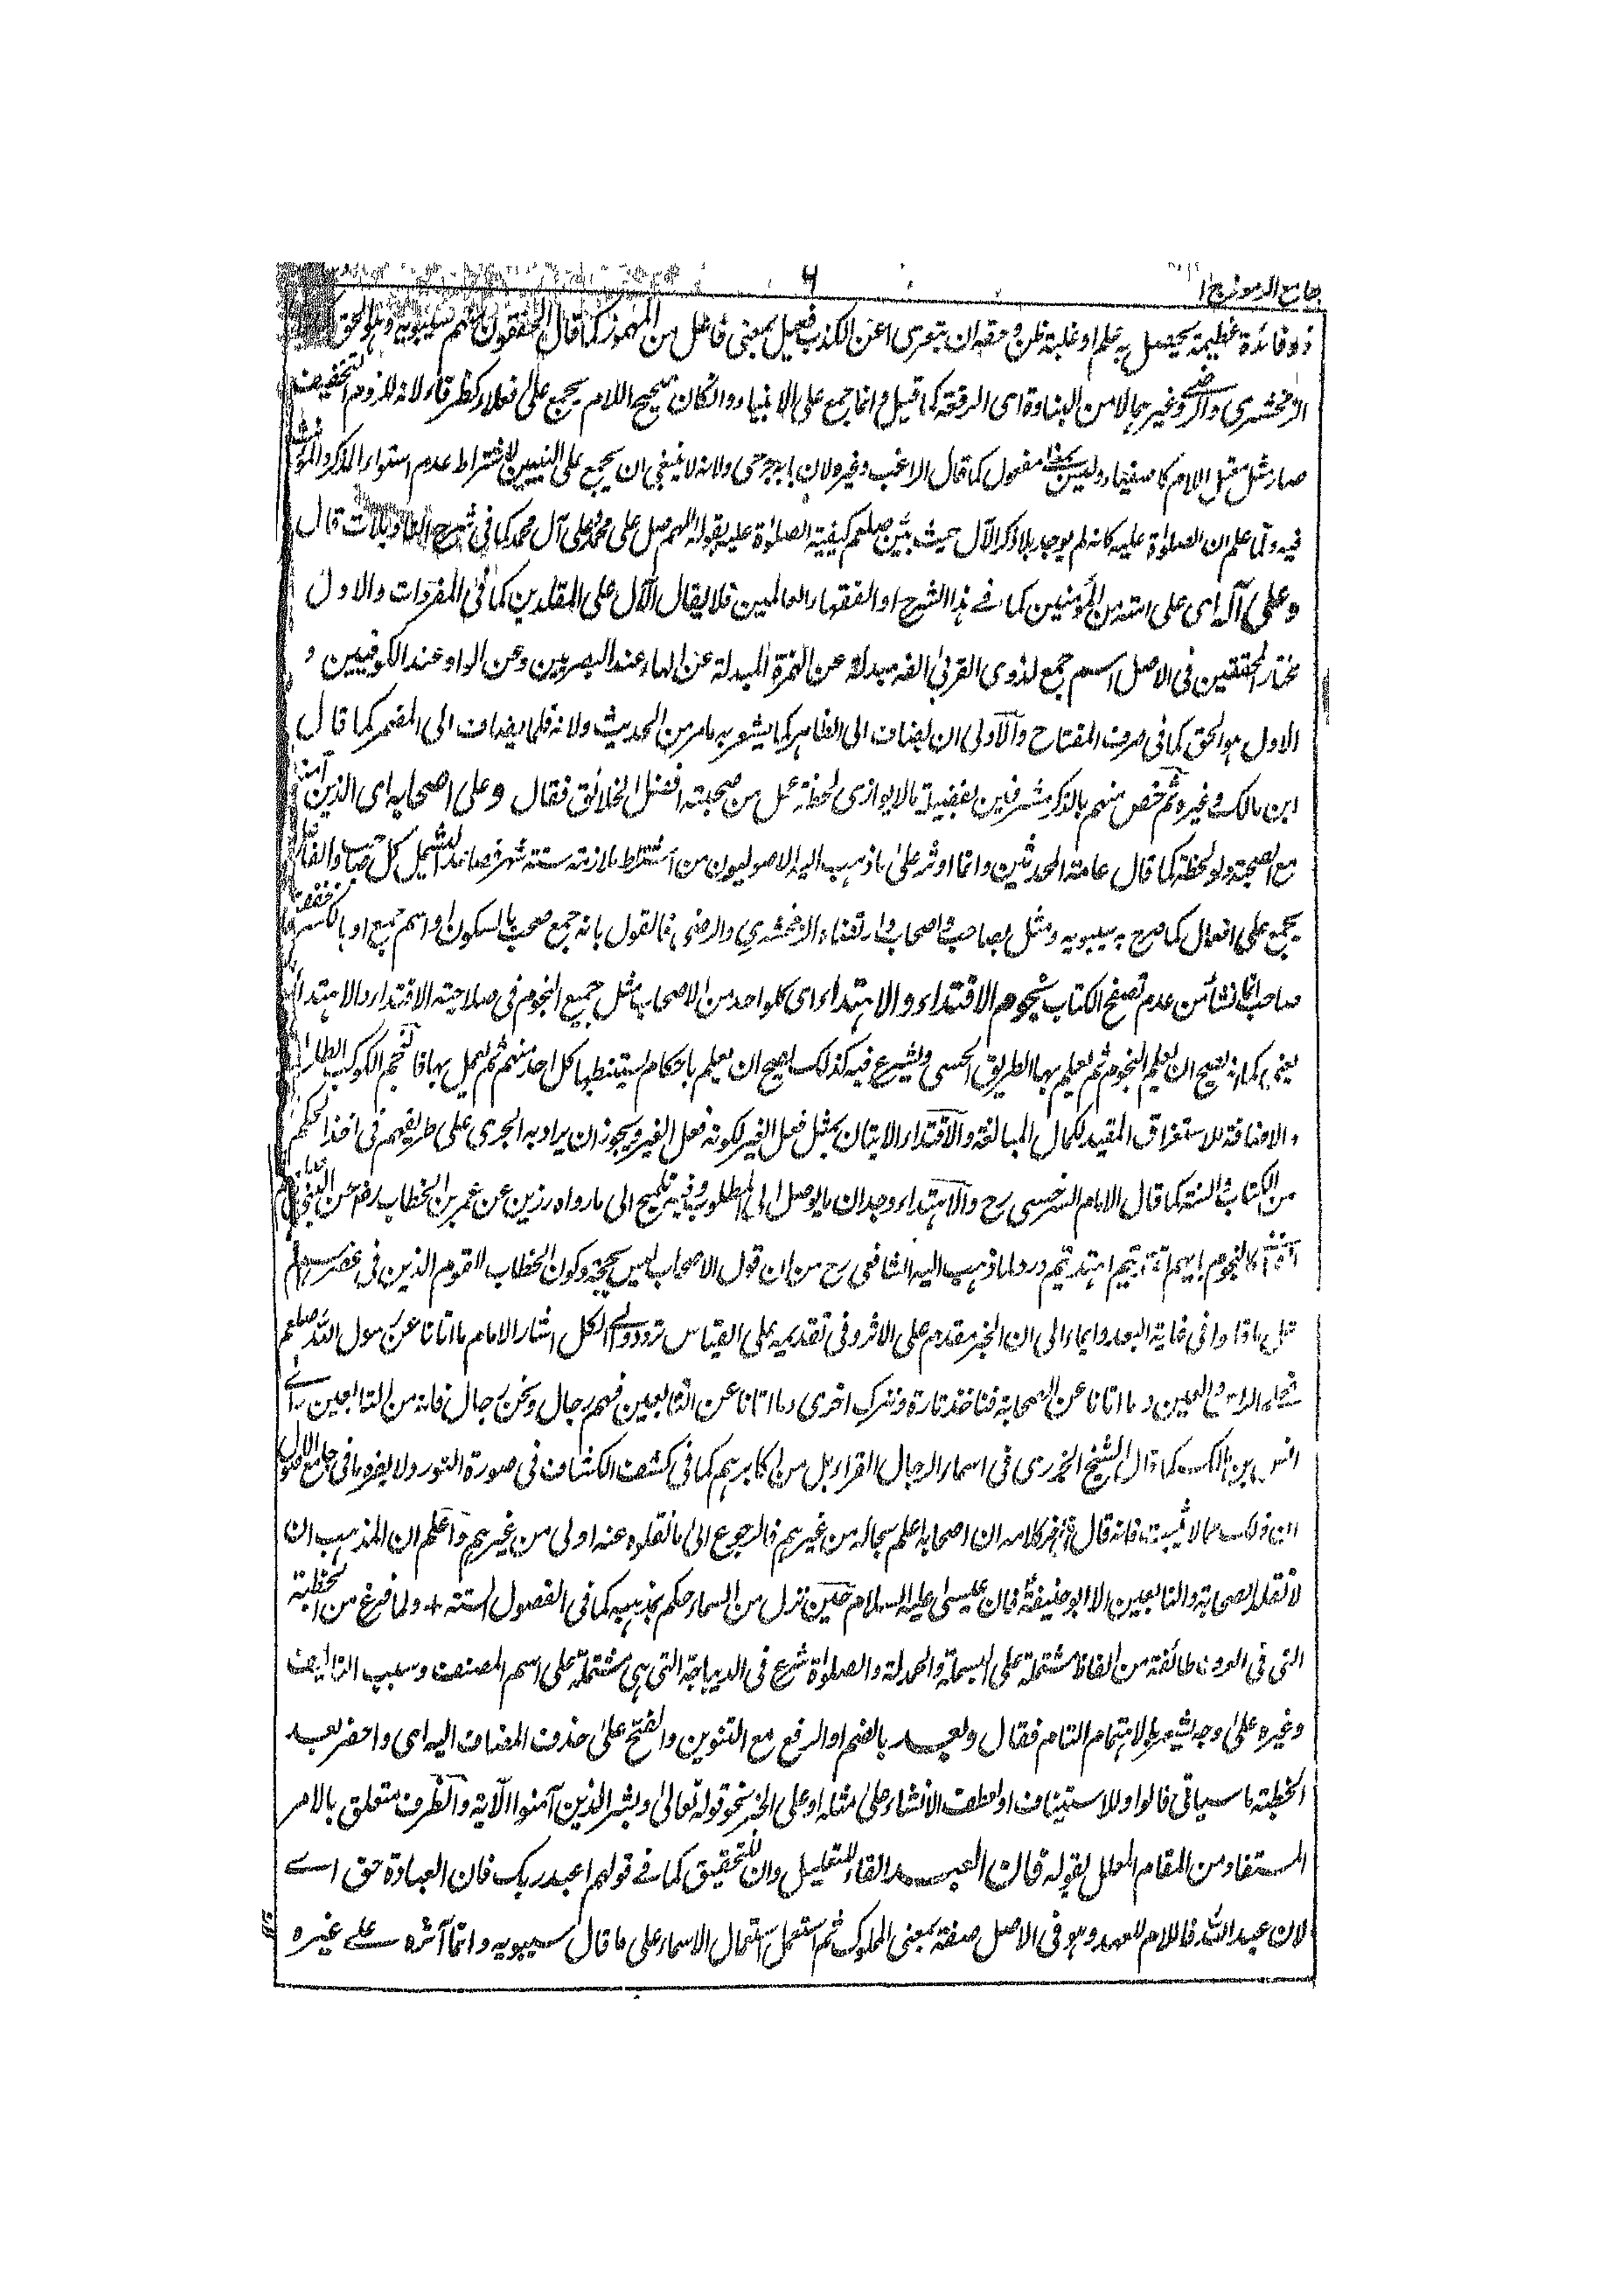 جامع الرموز ج ١
٦
ذو فائدة عظيمة يحصل به علم او غلبة ظن وحقه ان يتعرى عن الكذب فعيل بمعنى فاعل من المهموز كما قال المحققون منهم سيبويه وهو الحق
الزمخشري والرضى وغيرهما لا من النباوة اى الرفعة كما قيل وانما جمع على الانبياء وان كان صحيح اللام يجمع على فعلاء كظرفاء لانه للزوم التخفيف
صار مثل معتل اللام كاصفياء وليس بمعنى مفعول كما قال الراغب وغيره لان بابه جرحى ولانه لا ينبغى ان يجمع على النبيين لاشتراط عدم استواء المذكر والمؤنث
فيه ولما علم ان الصلوة عليه كانه لم يوجد بلا ذكر الآل حيث بين صلعم كيفية الصلوة عليه بقوله اللهم صل على محمد وعلى آل محمد كما فى شرح التاويلات قال
وعلى آله اى على امته من المؤمنين كما فے هذا الشرح او الفقهاء العالمين فلا يقال الآل على المقلدين كما فى المفردات والاول
مختار المحققين فى الاصل اسم جمع لذوى القربى الفه مبدلة عن الهمزة المبدلة عن الهاء عند البصريين وعن الواو عند الكوفيين و
الاول هو الحق كما فى صرف المفتاح والاولى ان يضاف الى الظاهر كما يشعر به ما مر من الحديث ولانه قلما يضاف الى المضمر كما قال
ابن مالك وغيره ثم خص منهم بالذكر مشرفين بفضيلة ما لا يوازى لحظة عمل من صحبته افضل الخلائق فقال وعلى اصحابه اى الذين آمنوا
مع الصحبة ولو لحظة كما قال عامة المحدثين وانما اوثر على ما ذهب اليه الاصوليون من اشتراط ملازمة ستة شهر فصاعدا ليشمل كل صاحب والفاعل
يجمع على افعال كما صرح به سيبويه ومثل بصاحب واصحاب وارتضاه الزمخشري والرضى فالقول بانه جمع صحب بالسكون او اسم جمع او بالكسر مخفف
صاحب انما نشأ من عدم تصفح الكتاب نجوم الاقتداء والاهتداء اى كل واحد من الاصحاب مثل جميع النجوم فى صلاحية الاقتداء والاهتداء
يعنى كما انه يصح ان يعلم النجوم ثم يعلم بها الطريق الحسى ويشرع فيه كذلك يصح ان يعلم باحكام يستنبطها كل احد منهم ثم يعمل بها فالنجم الكوكب الطالع
والاضافة للاستغراق المقيد لكمال المبالغة والاقتداء الاتيان بمثل فعل الغير لكونه فعل الغير ويجوز ان يراد به الجرى على طريقهم فى اخذ الحكم
من الكتاب والسنة كما قال الامام السرخسى رح والاهتداء وجدان ما يوصل الى المطلوب وفيه تلميح الى ما رواه رزين عن عمر بن الخطاب رض عن النبى
كالنجوم بايهم اقتديتم اهتديتم ورد لما ذهب اليه الشافعى رح من ان قول الاصحاب ليس بحجة وكون الخطاب للقوم الذين فى عصر
فى غاية البعد وايماء الى ان الخبر مقدم على الاثر وفى تقديمه على القياس تردد والى الكل اشار الامام ما اتانا عن رسول الله صلعم
فعلى الراس والعين وما اتانا عن الصحابة فناخذ تارة ونترك اخرى وما اتانا عن التابعين فهم رجال ونحن رجال فانه من التابعين رأى
انس بن مالك كما قال الشيخ الجزرى فى اسماء الرجال القراء بل من اكابرهم كما فى كشف الكشاف فى صورة النور ولا يضره ما فى جامع الاصول
ان ذلك مما لا يثبت فانه قال فى آخر كلامه ان اصحابه اعلم بحاله من غيرهم فالرجوع الى ما نقلوه عنه اولى من غيرهم واعلم ان المذهب ان
لا نقلد الصحابة والتابعين الا ابو حنيفة فان عيسى عليه السلام حين نزل من السماء حكم بمذهبه كما فى الفصول الستة ولما فرغ من الخطبة
التى فى العرف طائفة من الفاظ مشتملة على البسملة والحمدلة والصلوة شرع فى الديباجة التى هى مشتملة على اسم المصنف وسبب التاليف
وغيره على وجه يشعر بالاهتمام التام فقال وبعد بالضم او الرفع مع التنوين والفتح على حذف المضاف اليه اى واحضر بعد
الخطبة ما سياتى فالواو للاستيناف او لعطف الانشاء على مثله او على الخبر نحو قوله تعالى وبشر الذين آمنوا الآية والظرف متعلق بالامر
المستفاد من المقام المعلل بقوله فان العبد الفاء للتعليل وان للتحقيق كما فے قولهم اعبد ربك فان العبادة حق اے
لان عبد الله فاللام للعهد وهو فى الاصل صفة بمعنى المملوك ثم استعمل استعمال الاسماء على ما قال سيبويه وانما آثره علے غيره